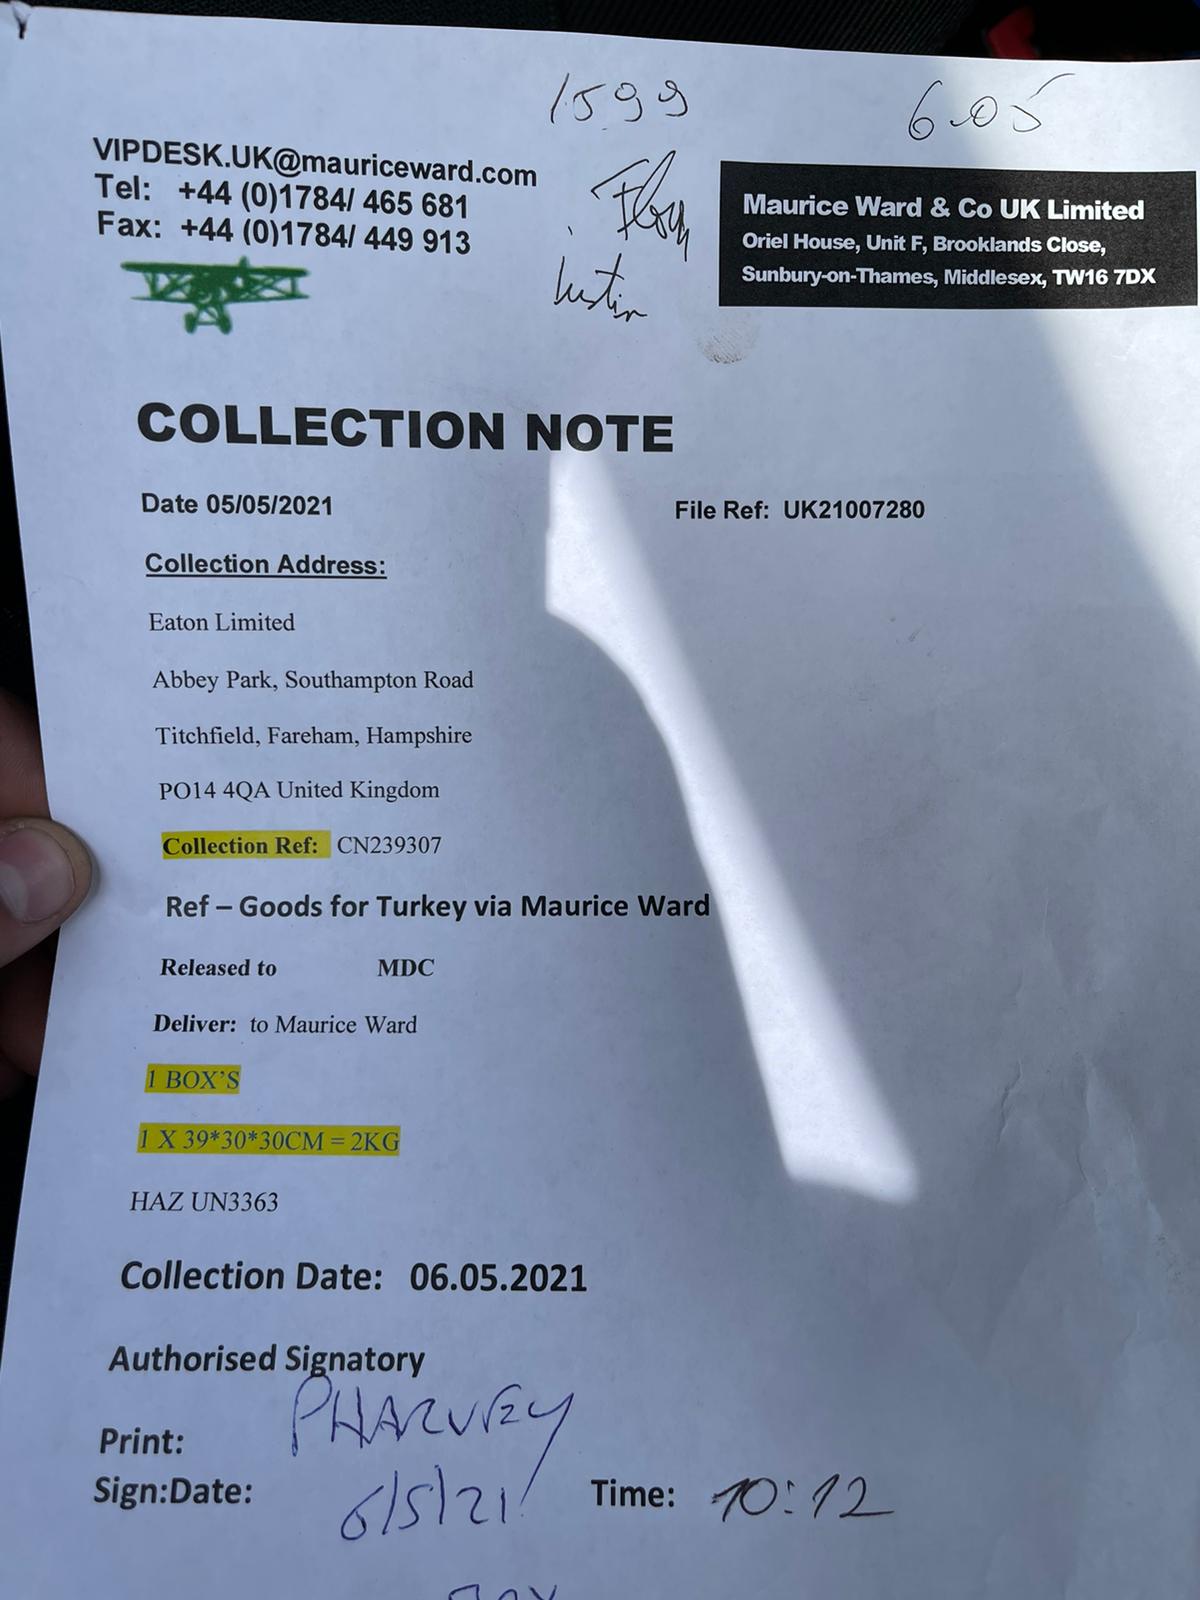 1599
6.05
VIPDESK.UK@mauriceward.com
Tel: +44 (0)1784/ 465 681
Fax: +44 (0)1784/ 449 913
Maurice Ward & Co UK Limited
Oriel House, Unit F, Brooklands Close,
Sunbury-on-Thames, Middlesex, TW16 7DX
COLLECTION NOTE
Date 05/05/2021
File Ref: UK21007280
Collection Address:
Eaton Limited
Abbey Park, Southampton Road
Titchfield, Fareham, Hampshire
PO14 4QA United Kingdom
Collection Ref: CN239307
Ref – Goods for Turkey via Maurice Ward
Released to MDC
Deliver: to Maurice Ward
1 BOX'S
1 X 39*30*30CM = 2KG
HAZ UN3363
Collection Date: 06.05.2021
Authorised Signatory
Print: PHARVEY
Sign:Date: 6/5/21 Time: 10:12